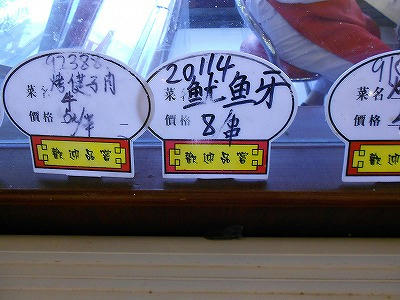 92338
菜名 烤腱子肉
牛
價格
歡迎品嘗
20114
菜名 魷魚牙
價格 8/串
歡迎品嘗
菜名
價格
歡迎品